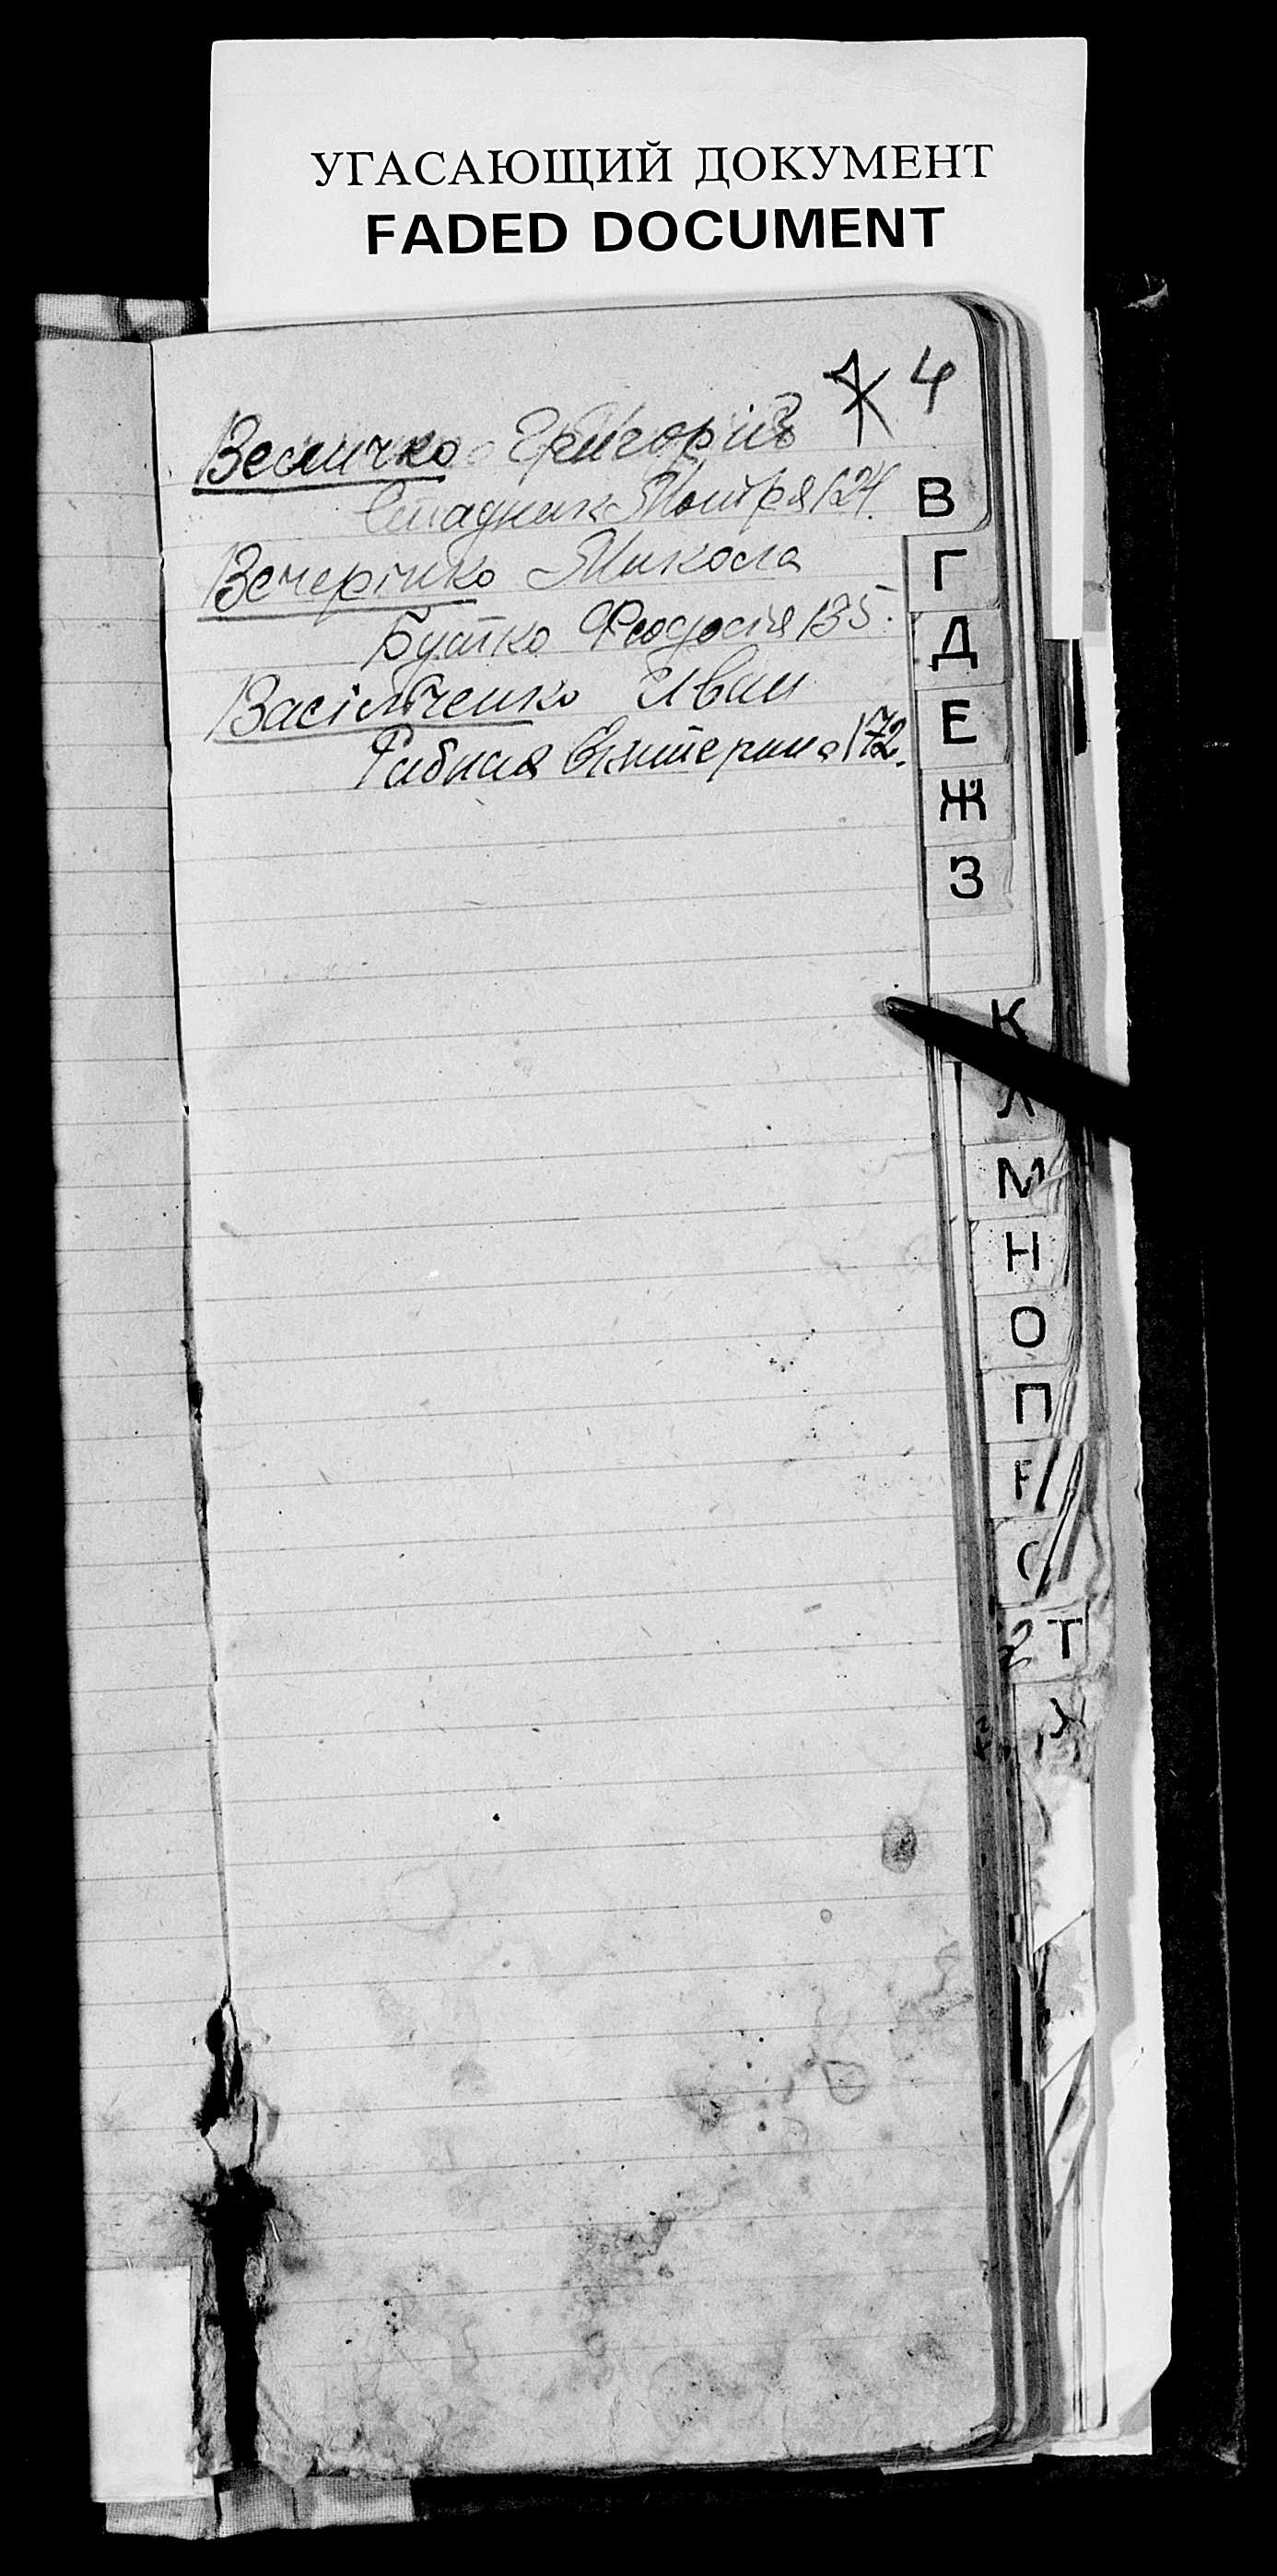 УГАСАЮЩИЙ ДОКУМЕНТ
FADED DOCUMENT
4
Величко Григорій
Стадник Мотря 124.
Вечерінко Микола
Бутко Феодосія 135.
Васільченко Иван
Рибная Екатерина 172.
В
Г
Д
Е
Ж
З
К
Л
М
Н
О
П
Р
С
2 Т
У